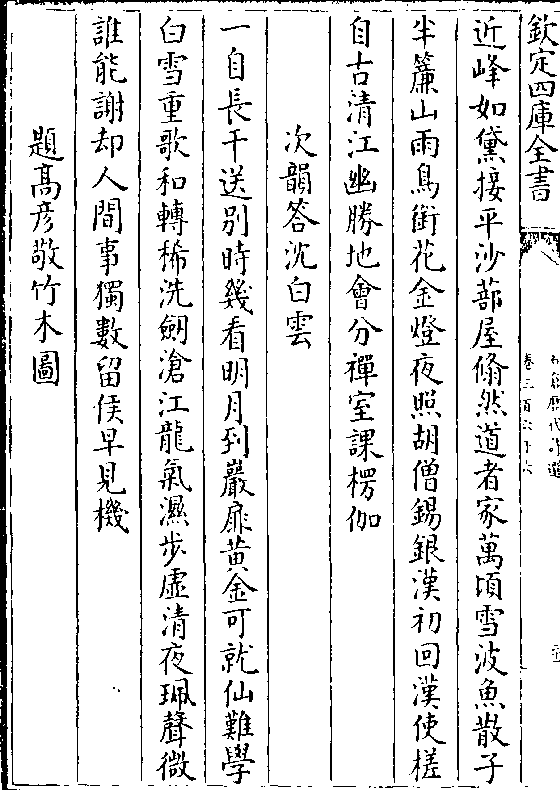 欽定四庫全書
近峰如黛接平沙蔀屋翛然道者家萬頃雪波魚散子
半簾山雨鳥銜花金燈夜照胡僧錫銀漢初回漢使槎
自古清江幽勝地會分禪室課楞伽
次韻答沈白雲
一自長干送别時幾看明月到巖扉黄金可就仙難學
白雪重歌和轉稀洗劒滄江龍氣濕步虚清夜珮聲微
誰能謝却人間事獨數留侯早見機
題高彦敬竹木圖